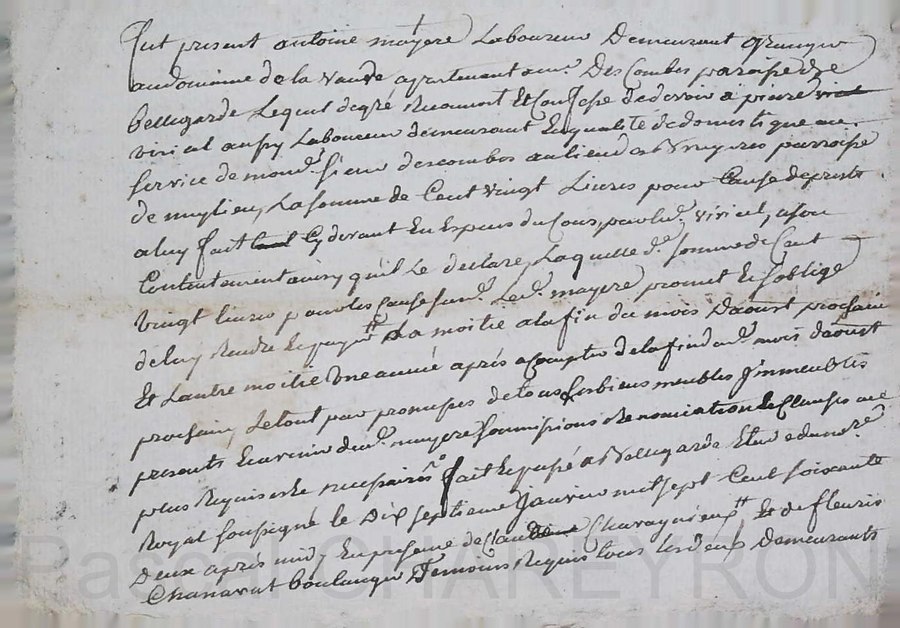 fut present antoine mayere Laboureur Demeurant granger
audomaine de la vaure apartenant a mr. Descombes paroisse de
bellegarde Lequel degré Reconnoit Et Confesse de devoir a pierre
virical aussy Laboureur demeurant En qualité de domestique au
service de mond. sieur descombes au lieu de parroisse
de mylieu, La somme de Cent vingt Livres pour Cause deprests
a luy fait Cy devant En Especes du Cours, par led. virical, a son
Contentement ainsy quil Le declare, Laquelle de. somme de Cent
vingt livres pour les Causes susd. Led. mayere promet Et soblige
de luy Rendre Et payer La moitié a la fin du mois Daoust prochain
Et Lautre moitié Une année après a Compter de la fin dud. mois daoust
prochain, Letout par promesses de tous ses biens meubles & immeubles
presents Et avenir dud. mayere soumissions Renonciation Et Clauses au
plus Requises Et necessaires fait Et passé a Bellegarde Etude du no.re
Royal soussigné le Dix septieme Janvier mil sept Cent soixante
Deux après midy En presence de Claude Et de fleuris
Chanavat boulanger Temoins Requis tous Les Deux Demeurants
Pascal CHAREYRON